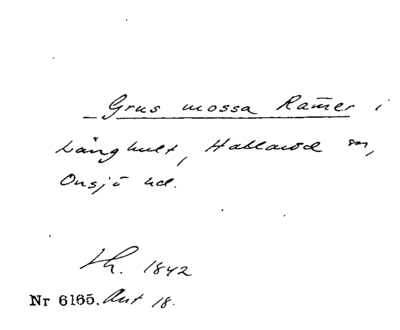 Grus mossa Ramer i
Långhult, Hallaröd sn,
Onsjö hd.
Th. 1842
Nr 6165. Ant 18.